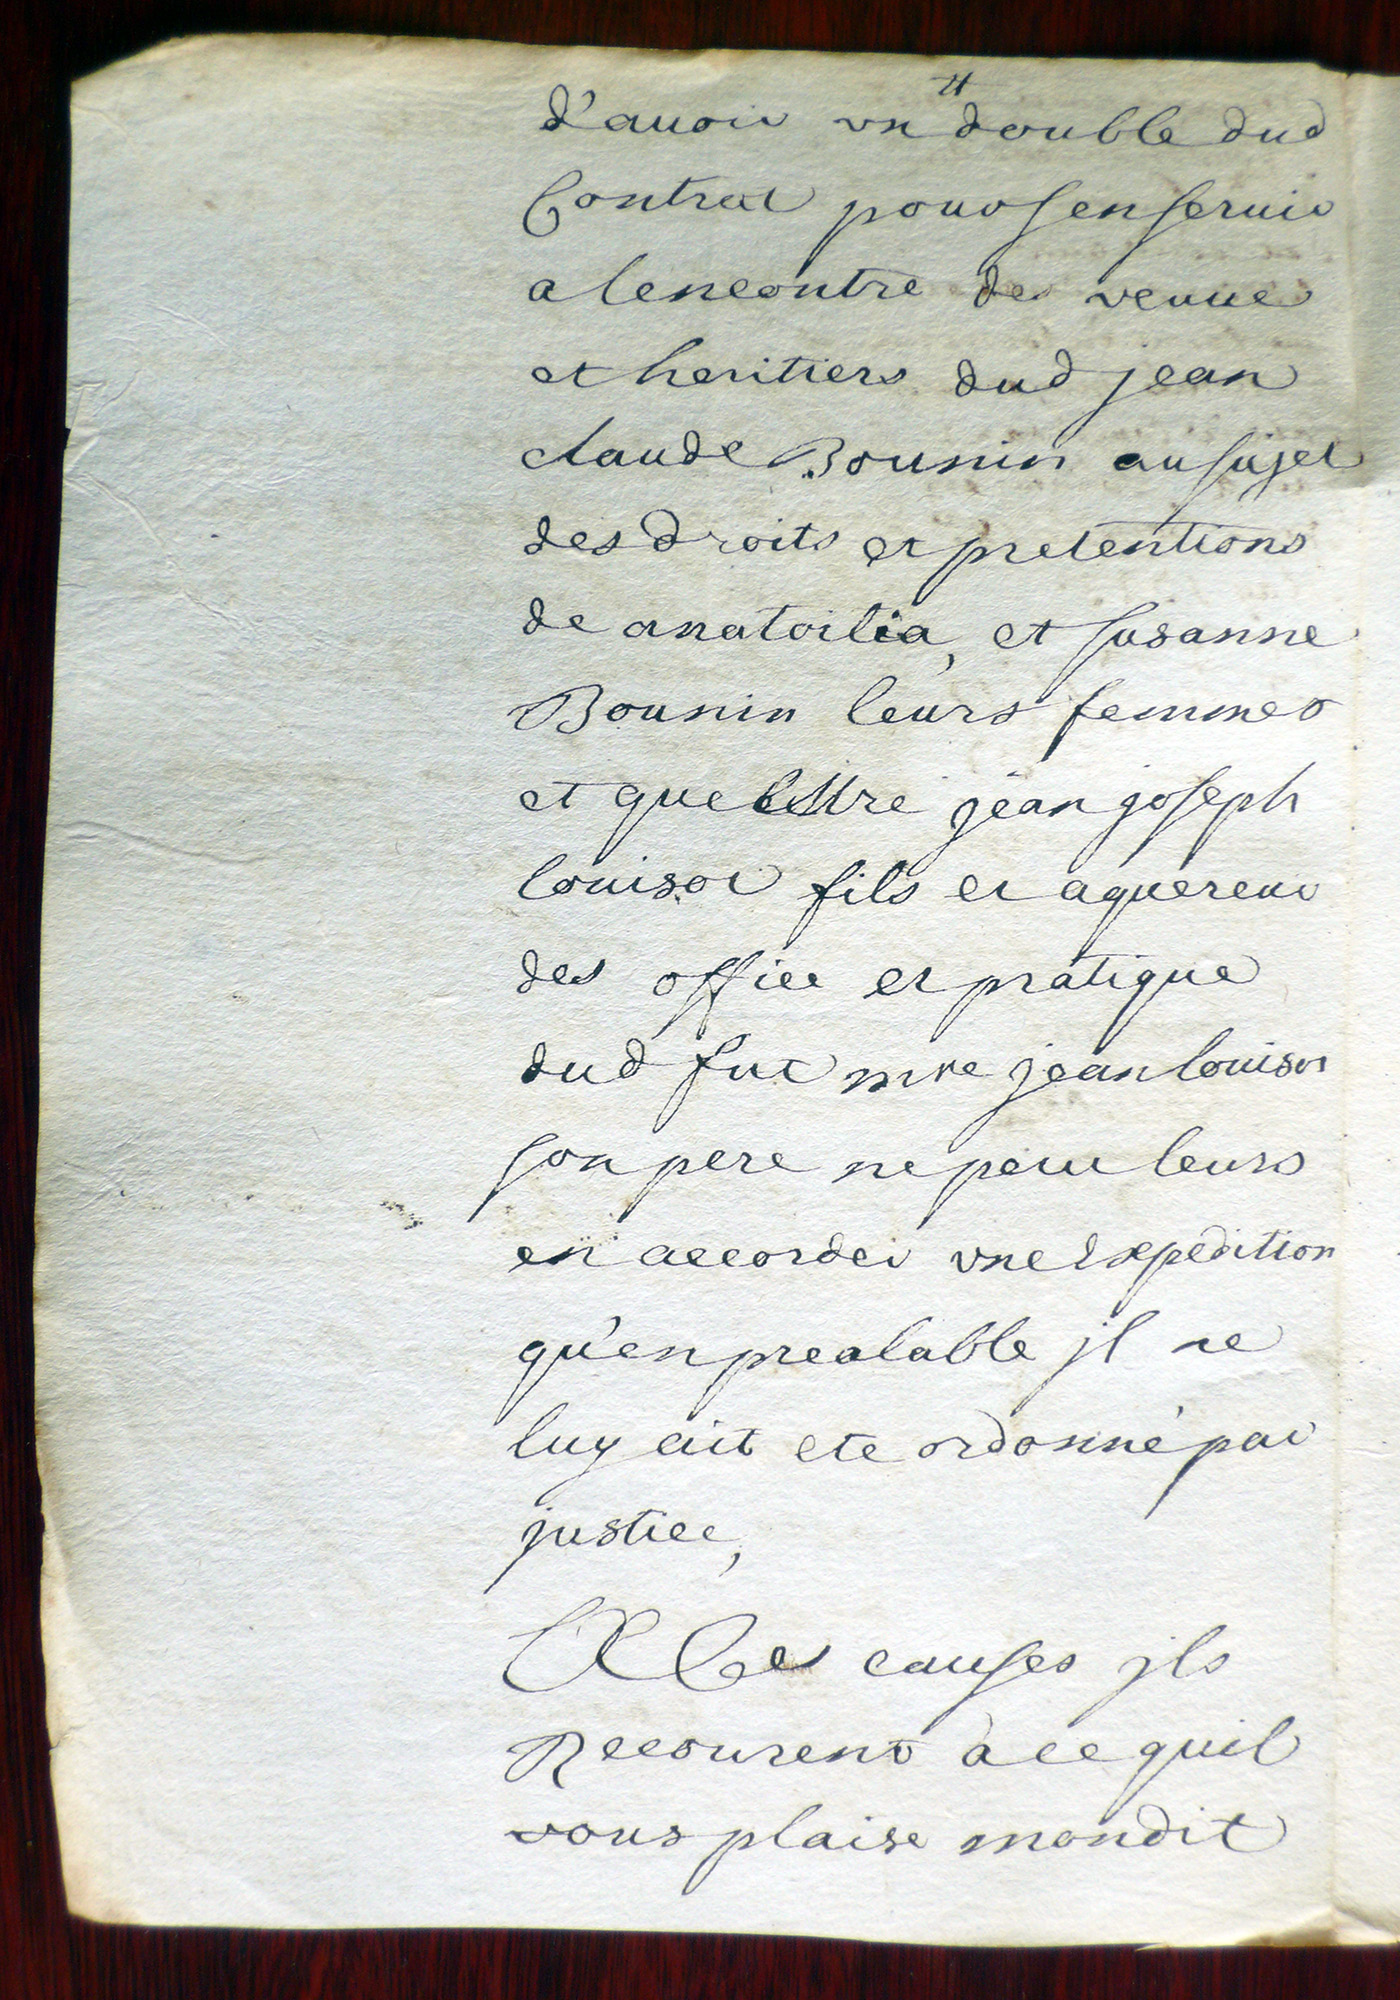 d'auoir vn double dud
Contrat pour sen seruir
a lencontre des veuue
et heritiers dud jean
claude Bounin au sujet
des droits et pretentions
de anatoilia, et susanne
Bounin leurs femmes
et que Mtre jean joseph
louisot fils et aquereur
des office et pratique
dud fut mre jean louisot
son pere ne peut leurs
en accorder vne Expedition
qu'en prealable jl ne
luy ait ete ordonné par
justice,
A Ces causes jls
Recourent à ce quil
vous plaise mondit